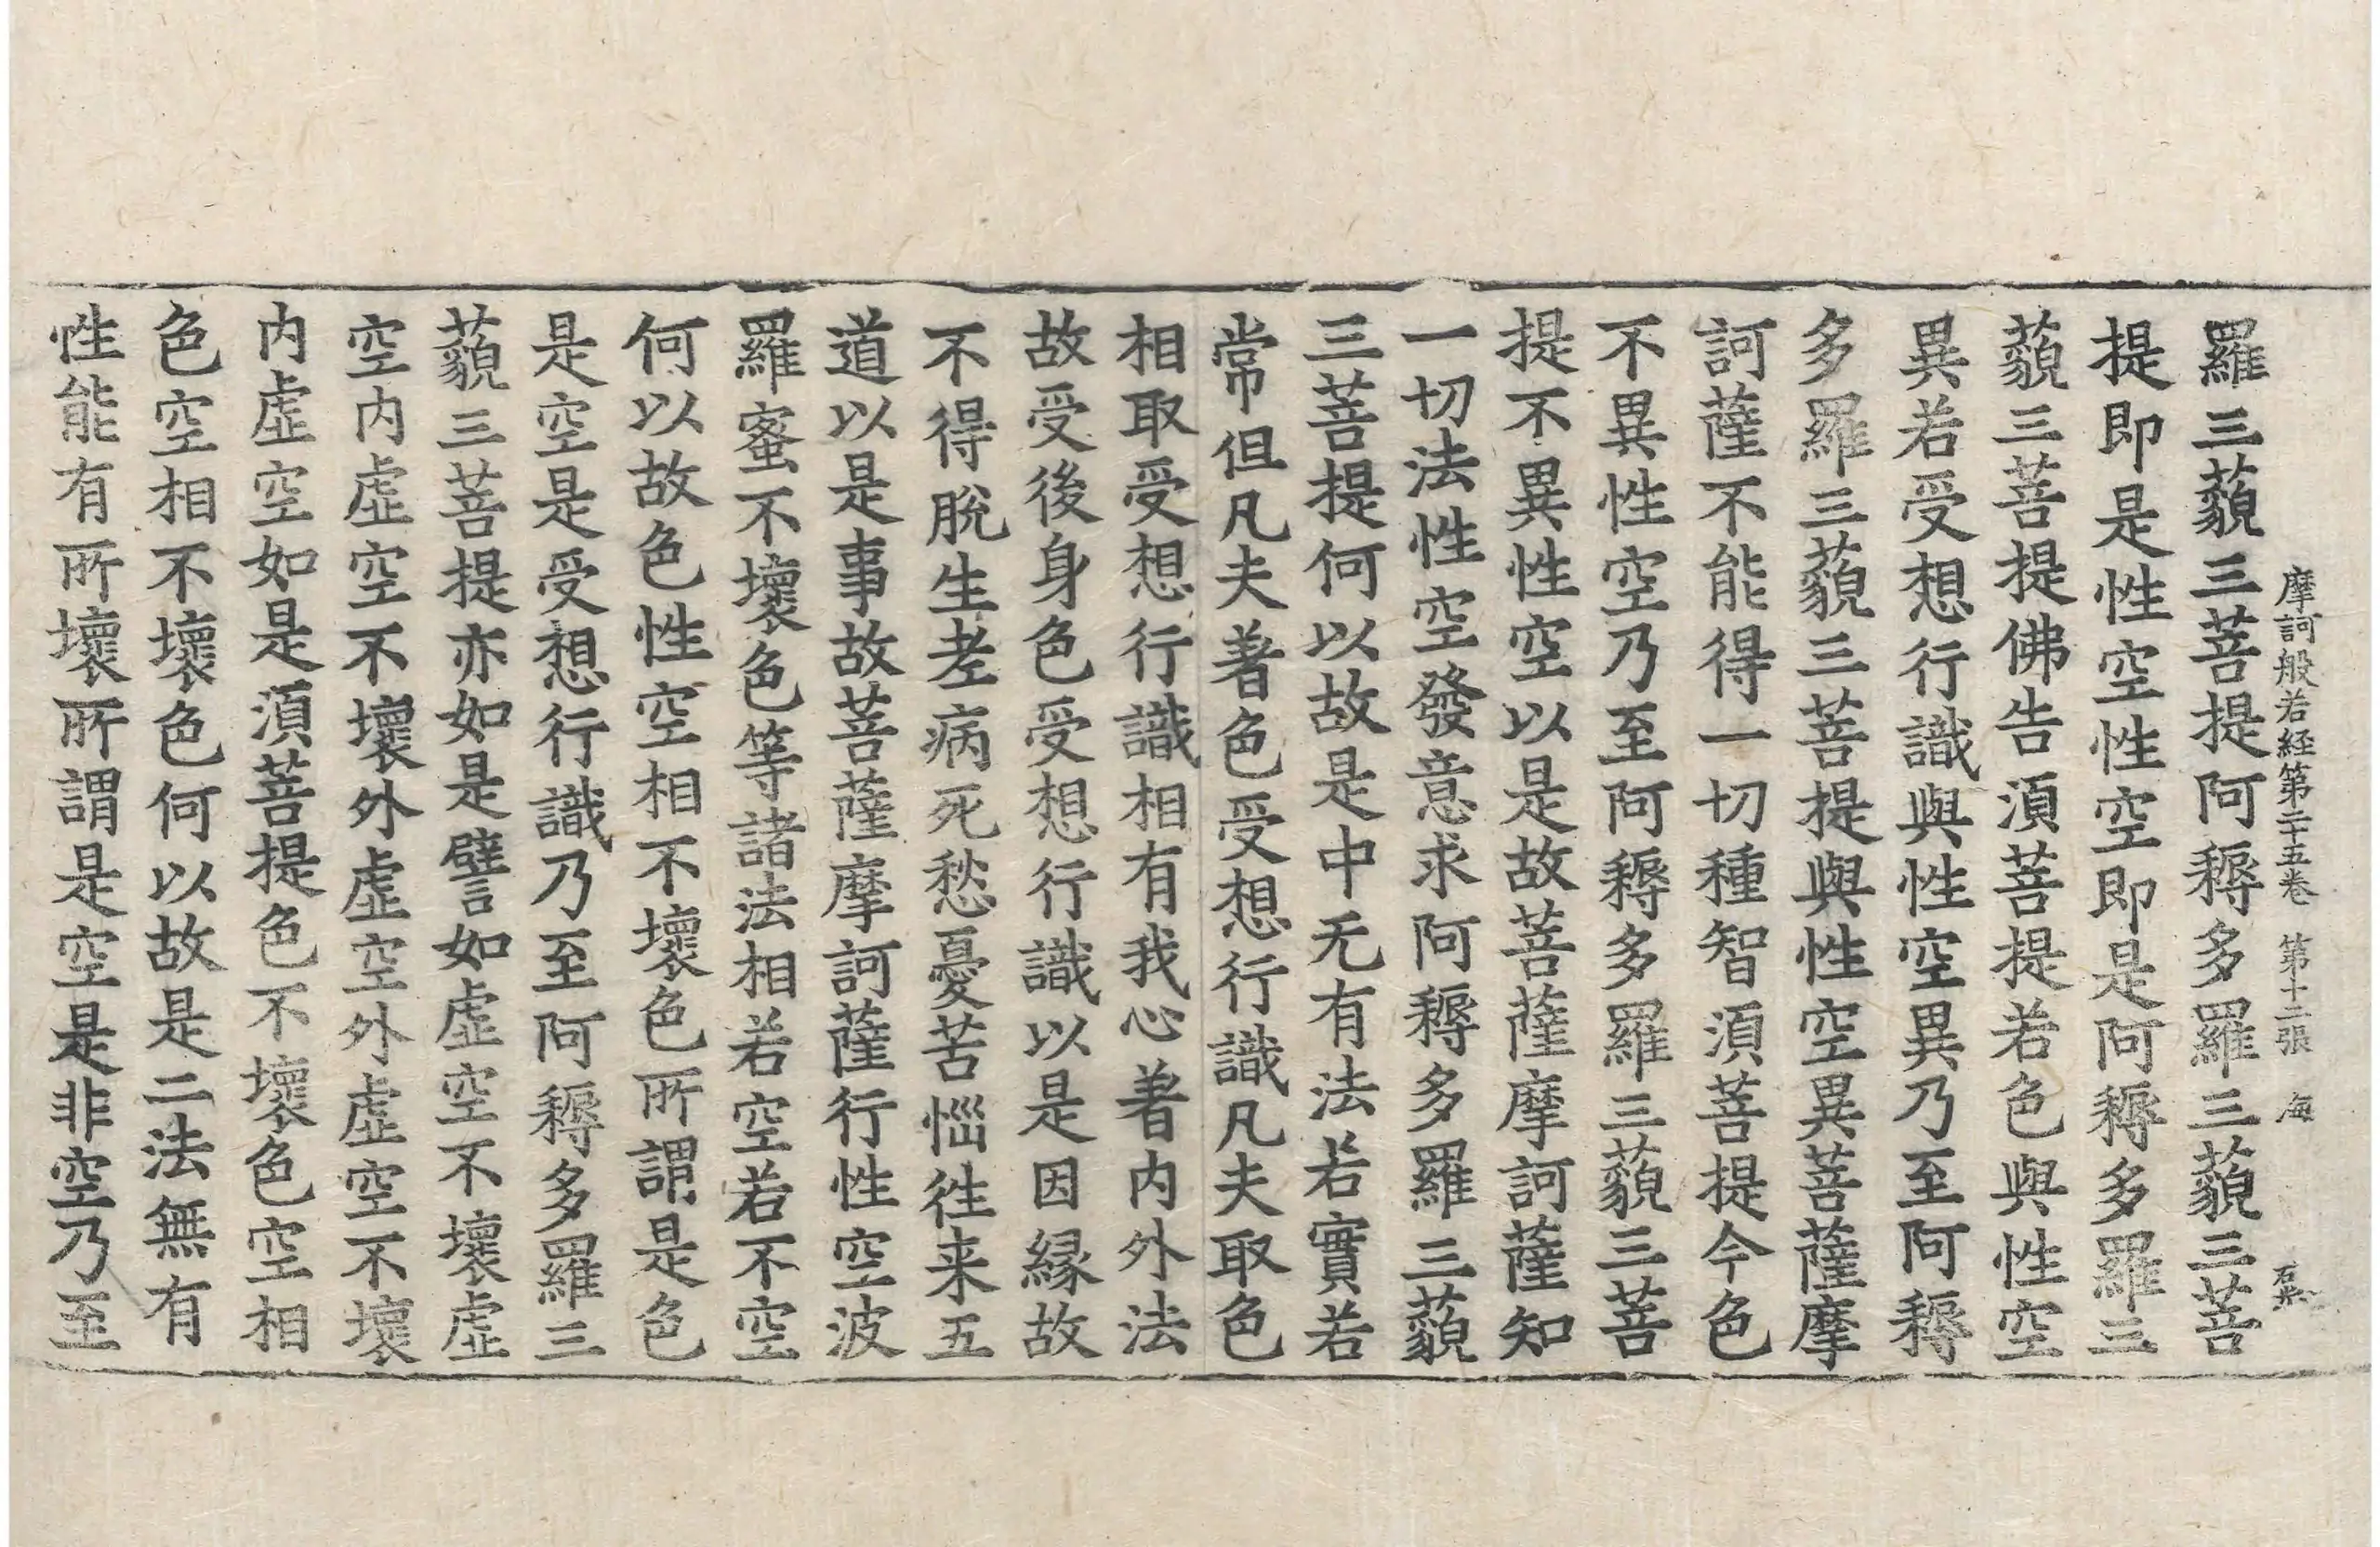 摩訶般若経第二十五卷 第十二張 海
羅三藐三菩提阿耨多羅三藐三菩
提即是性空性空即是阿耨多羅三
藐三菩提佛告湏菩提若色與性空
異若受想行識與性空異乃至阿耨
多羅三藐三菩提與性空異菩薩摩
訶薩不能得一切種智湏菩提今色
不異性空乃至阿耨多羅三藐三菩
提不異性空以是故菩薩摩訶薩知
一切法性空發意求阿耨多羅三藐
三菩提何以故是中无有法若實若
常但凡夫著色受想行識凡夫取色
相取受想行識相有我心著内外法
故受後身色受想行識以是因縁故
不得脫生老病死愁憂苦惱徃来五
道以是事故菩薩摩訶薩行性空波
羅蜜不壞色等諸法相若空若不空
何以故色性空相不壞色所謂是色
是空是受想行識乃至阿耨多羅三
藐三菩提亦如是譬如虛空不壞虛
空内虛空不壞外虛空外虛空不壞
内虛空如是湏菩提色不壞色空相
色空相不壞色何以故是二法無有
性能有所壞所謂是空是非空乃至